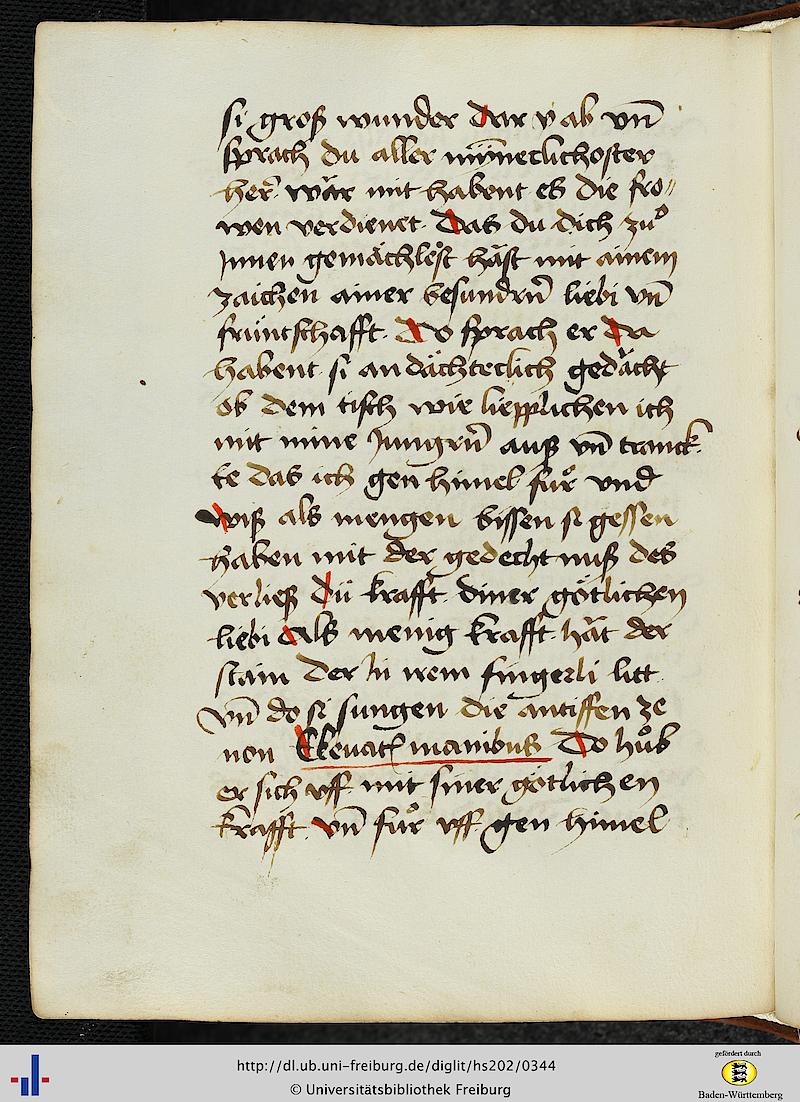 si groß wunder dar v̈ ab vn̄
sprach du aller min̄eclichoster
her̄ wär mit habent es die fro〃
wen verdienet. Das du dich zuͦ
Jnnen gemächlost häst mit ainem
zaichen ainer besundrn̄ liebi vn̄
früntschafft. do sprach er da
habent si andächteclich gedächt
ob dem tisch wie liepplichen ich
mit mine Jungrn̄ auß vn̄ tranck〃
te das ich gen himel fuͦr vnd
wiß als mengen bissen si gessen
haben mit der gedechtnuß des
verließ dü krafft diner götlichen
liebi als menig krafft hät der
stain der in irem fingerli litt
vn̄ do si sungen die antiffen ze
non Eleuatis manibus Do huͦb
er sich vff mit siner götlichen
krafft vn̄ fuͦr vff gen himel
http://dl.ub.uni-freiburg.de/diglit/hs202/0344
© Universitätsbibliothek Freiburg
gefördert durch
Baden-Württemberg